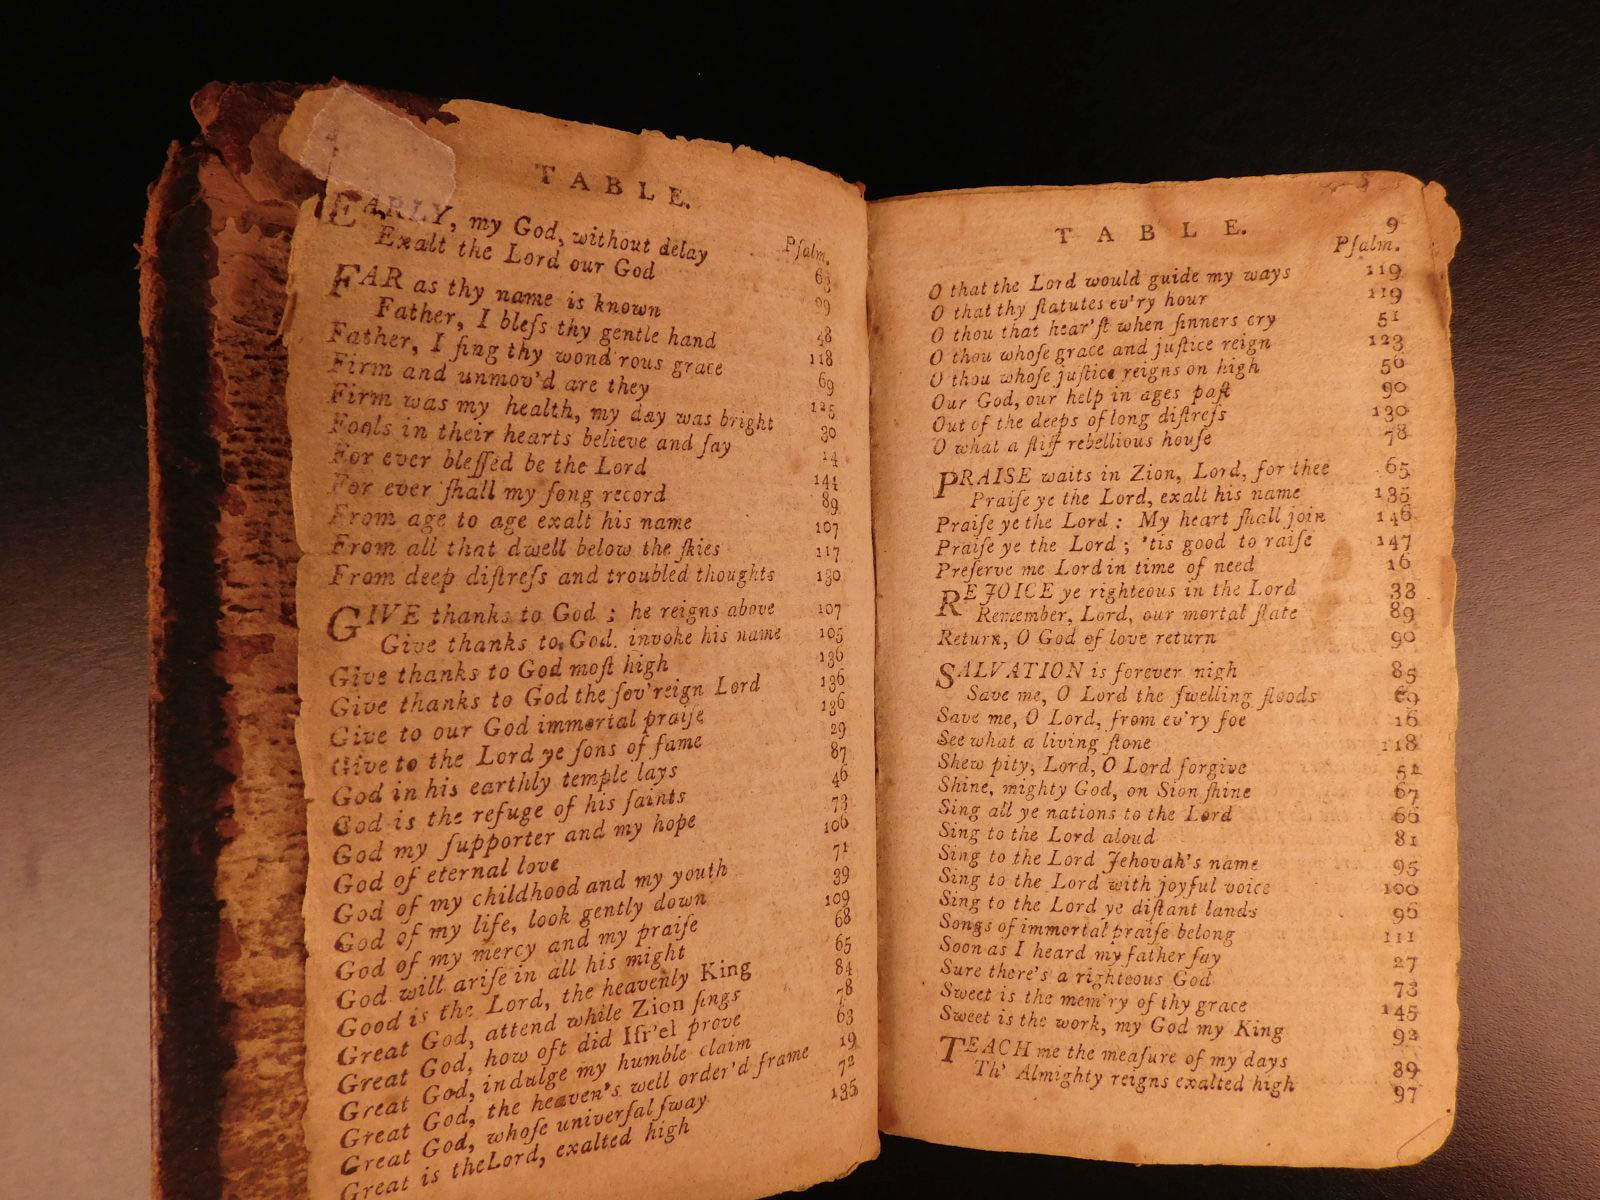 TABLE.
Pſalm.
EARLY, my God, without delay 63
Exalt the Lord our God 99
FAR as thy name is known 48
Father, I bleſs thy gentle hand 118
Father, I ſing thy wond'rous grace 69
Firm and unmov'd are they 125
Firm was my health, my day was bright 30
Fools in their hearts believe and ſay 14
For ever bleſſed be the Lord 144
For ever ſhall my ſong record 89
From age to age exalt his name 107
From all that dwell below the ſkies 117
From deep diſtreſs and troubled thoughts 130
GIVE thanks to God; he reigns above 107
Give thanks to God. invoke his name 105
Give thanks to God moſt high 136
Give thanks to God the ſov'reign Lord 136
Give to our God immortal praiſe 136
Give to the Lord ye ſons of fame 29
God in his earthly temple lays 87
God is the refuge of his ſaints 46
God my ſupporter and my hope 73
God of eternal love 106
God of my childhood and my youth 71
God of my life, look gently down 39
God of my mercy and my praiſe 109
God will ariſe in all his might 68
Good is the Lord, the heavenly King 65
Great God, attend while Zion ſings 84
Great God, how oft did Iſr'el prove 78
Great God, indulge my humble claim 63
Great God, the heaven's well order'd frame 19
Great God, whoſe univerſal ſway 72
Great is theLord, exalted high 135
TABLE. 9
Pſalm.
O that the Lord would guide my ways 119
O that thy ſtatutes ev'ry hour 119
O thou that hear'ſt when ſinners cry 51
O thou whoſe grace and juſtice reign 123
O thou whoſe juſtice reigns on high 56
Our God, our help in ages paſt 90
Out of the deeps of long diſtreſs 130
O what a ſtiff rebellious houſe 78
PRAISE waits in Zion, Lord, for thee 65
Praiſe ye the Lord, exalt his name 135
Praiſe ye the Lord: My heart ſhall join 146
Praiſe ye the Lord; 'tis good to raiſe 147
Preſerve me Lord in time of need 16
REJOICE ye righteous in the Lord 33
Remember, Lord, our mortal ſtate 89
Return, O God of love return 90
SALVATION is forever nigh 85
Save me, O Lord the ſwelling floods 69
Save me, O Lord, from ev'ry foe 16
See what a living ſtone 118
Shew pity, Lord, O Lord forgive 51
Shine, mighty God, on Sion ſhine 67
Sing all ye nations to the Lord 66
Sing to the Lord aloud 81
Sing to the Lord Jehovah's name 95
Sing to the Lord with joyful voice 100
Sing to the Lord ye diſtant lands 96
Songs of immortal praiſe belong 111
Soon as I heard my father ſay 27
Sure there's a righteous God 73
Sweet is the mem'ry of thy grace 145
Sweet is the work, my God my King 92
TEACH me the meaſure of my days 39
Th' Almighty reigns exalted high 97